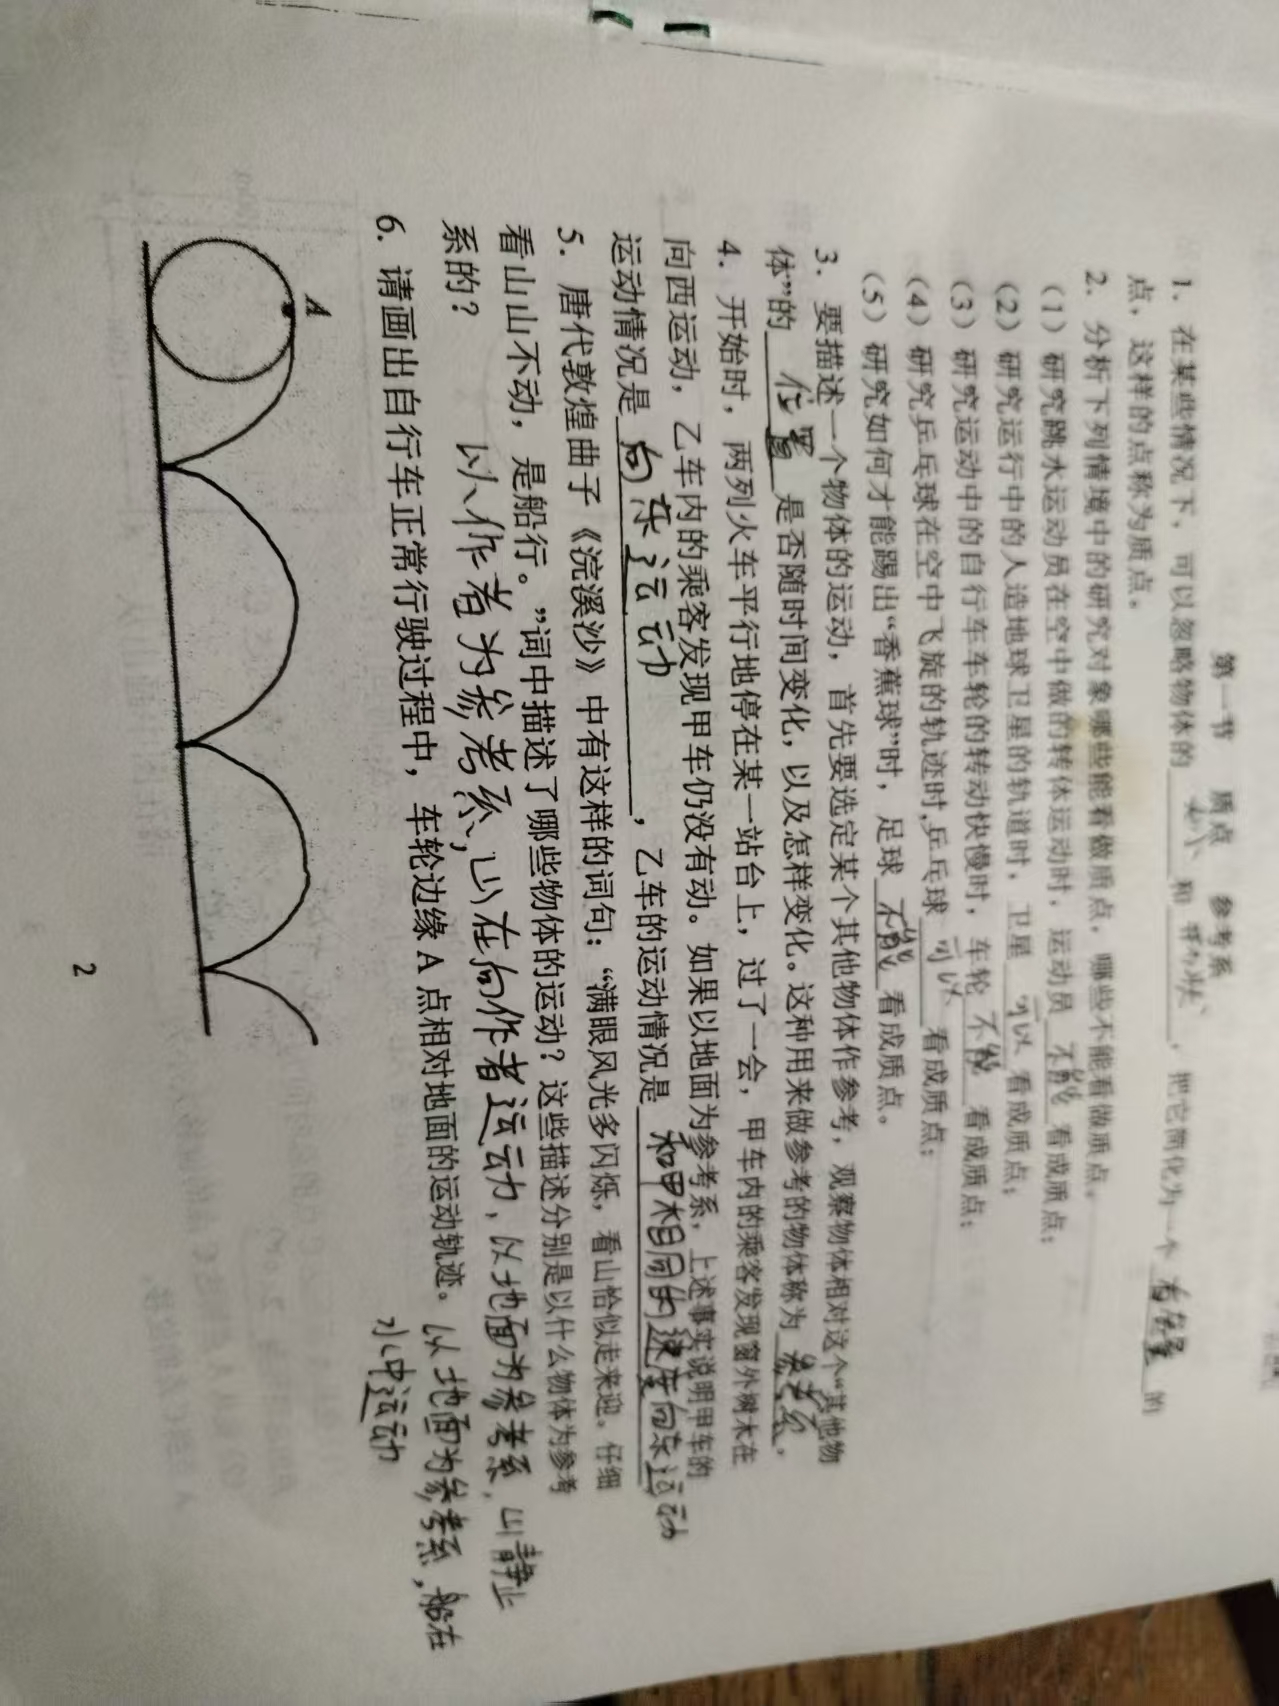 第一节 质点 参考系
1．在某些情况下，可以忽略物体的 大小 和 形状 ，把它简化为一个 有质量 的
点，这样的点称为质点。
2．分析下列情境中的研究对象哪些能看做质点，哪些不能看做质点。
（1）研究跳水运动员在空中做的转体运动时，运动员 不能 看成质点；
（2）研究运行中的人造地球卫星的轨道时，卫星 可以 看成质点；
（3）研究运动中的自行车车轮的转动快慢时，车轮 不能 看成质点；
（4）研究乒乓球在空中飞旋的轨迹时，乒乓球 可以 看成质点；
（5）研究如何才能踢出“香蕉球”时，足球 不能 看成质点。
3．要描述一个物体的运动，首先要选定某个其他物体作参考，观察物体相对这个“其他物
体”的 位置 是否随时间变化，以及怎样变化。这种用来做参考的物体称为 参考系 。
4．开始时，两列火车平行地停在某一站台上，过了一会，甲车内的乘客发现窗外树木在
向西运动，乙车内的乘客发现甲车仍没有动。如果以地面为参考系，上述事实说明甲车的
运动情况是 向东运动 ，乙车的运动情况是 和甲相同的速度向东运动
5．唐代敦煌曲子《浣溪沙》中有这样的词句：“满眼风光多闪烁，看山恰似走来迎。仔细
看山山不动，是船行。”词中描述了哪些物体的运动？这些描述分别是以什么物体为参考
系的？ 以作者为参考系，山在向作者运动，以地面为参考系，山静止
以地面为参考系，船在
水中运动
6．请画出自行车正常行驶过程中，车轮边缘 A 点相对地面的运动轨迹。
A
2